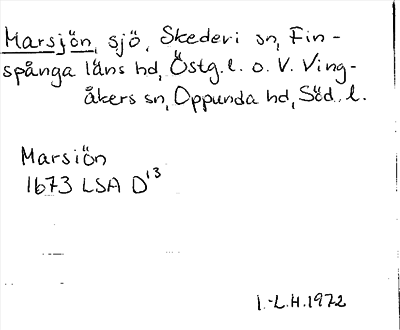 Marsjön, sjö, Skedevi sn, Fin-
spånga läns hd, Östg. l. o. V. Ving-
åkers sn, Oppunda hd, Söd. l.
Marsiön
1673 LSA D¹³
I.-L.H.1972